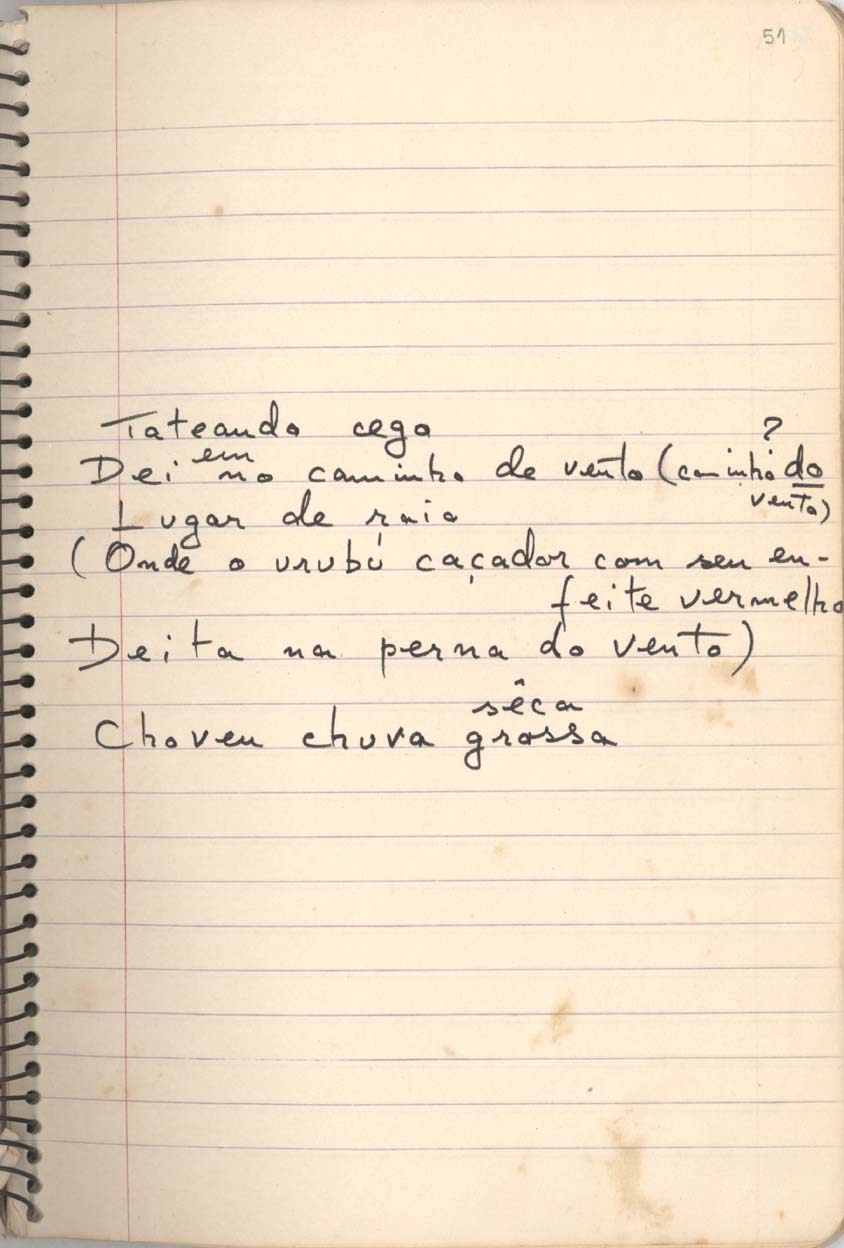 51
Tateando cego
?
em
Dei no caminho de vento (caminho do
vento)
Lugar de raio
(Onde o urubú caçador com seu en-
feite vermelho
Deita na perna do vento)
sêca
Choveu chuva grossa